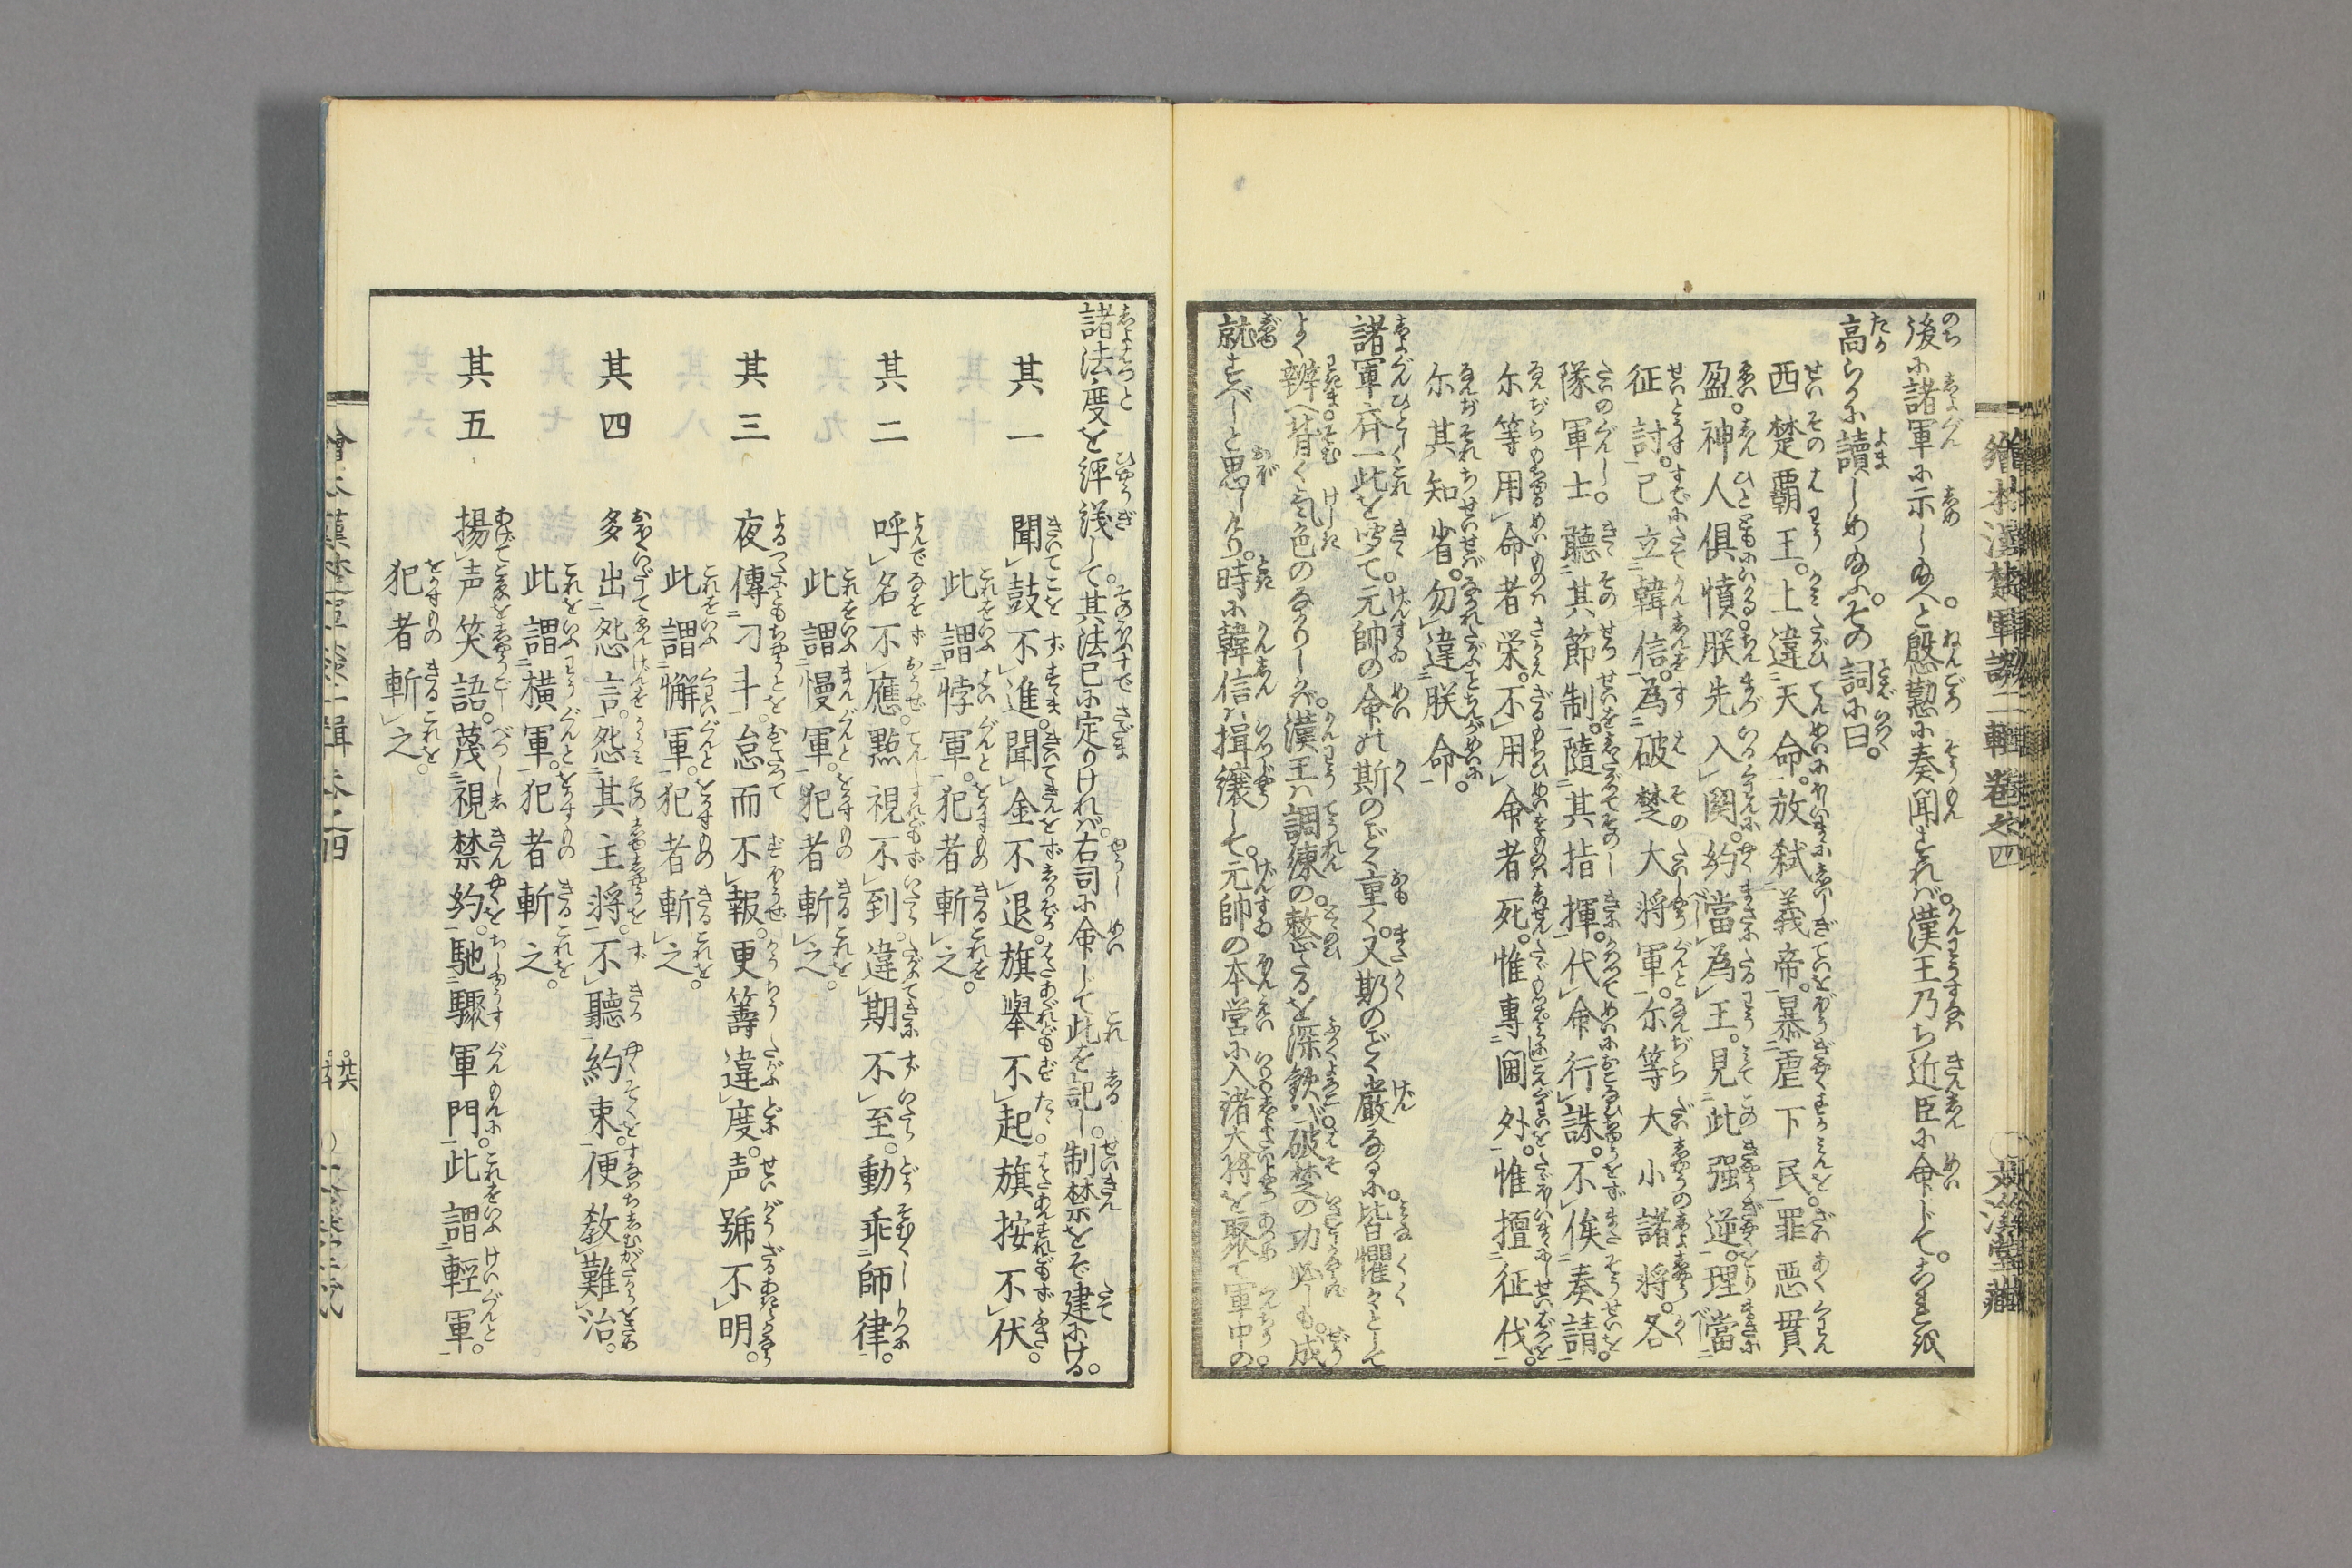 繪本漢楚軍談二輯卷之四
文溪堂藏
後に諸軍に示し給へと慇懃に奏聞すれバ。漢王乃ち近臣に命じて。これを
高らかに讀しめ給ふ。その詞に曰。
西楚覇王。上違天命。放弑義帝。暴虐下民。罪惡貫
盈。神人倶憤。朕先入関。約當為王。見此强逆。理當
征討。已立韓信。為破楚大将軍。尓等大小諸将。各
隊軍士。聽其節制。隨其指揮。代命行誅。不俟奏請。
尓等用命者栄。不用命者死。惟專閫外。惟擅征伐。
尓其知省。勿違朕命。
諸軍齊一此を聞て。元帥の命の斯のごく重く。又斯のごく嚴なるに。皆懼々として
よく辨へ背く氣色のなかりしかバ。漢王ハ調練の整たるを深歓び。破楚の功必しも。成
就すべしと思しけり。時に韓信ハ揖讓して。元帥の本営に入。諸大将を聚て軍中の。
諸法度を評議して。其法已に定りけれバ。右司に命じて此を記し。制禁をぞ建にける。
其一　聞鼓不進。聞金不退。旗擧不起。旗按不伏。
此謂悖軍。犯者斬之。
其二　呼名不應。點視不到。違期不至。動乖師律。
此謂慢軍。犯者斬之。
其三　夜傳刁斗。怠而不報。更籌違度。声號不明。
此謂懈軍。犯者斬之。
其四　多出怨言。怨其主将。不聽約束。便教難治。
此謂横軍。犯者斬之。
其五　揚声笑語。蔑視禁約。馳驟軍門。此謂輕軍。
犯者斬之。